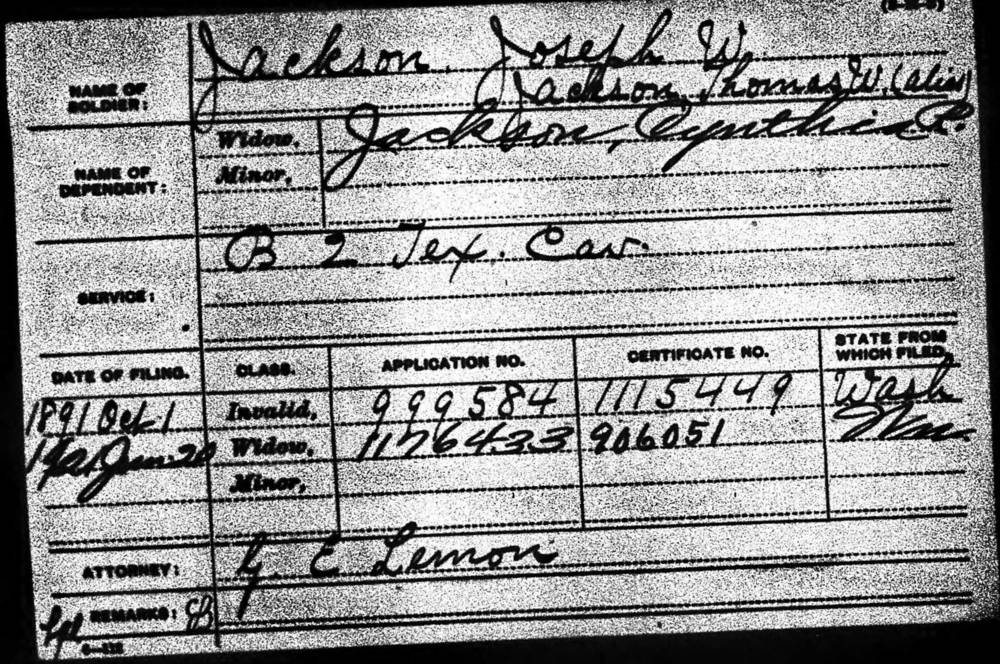 Jackson, Joseph W.
NAME OF SOLDIER:
Jackson, Thomas W. (alias)
NAME OF DEPENDENT:
Widow, Jackson, Cynthia R.
Minor,
SERVICE:
B 2 Tex. Cav.
DATE OF FILING. CLASS. APPLICATION NO. CERTIFICATE NO. STATE FROM WHICH FILED.
1891 Oct 1 Invalid, 999584 1115449 Wash
1921 Jan 20 Widow, 1176433 906051
Minor,
ATTORNEY: G. E. Lemon
REMARKS: